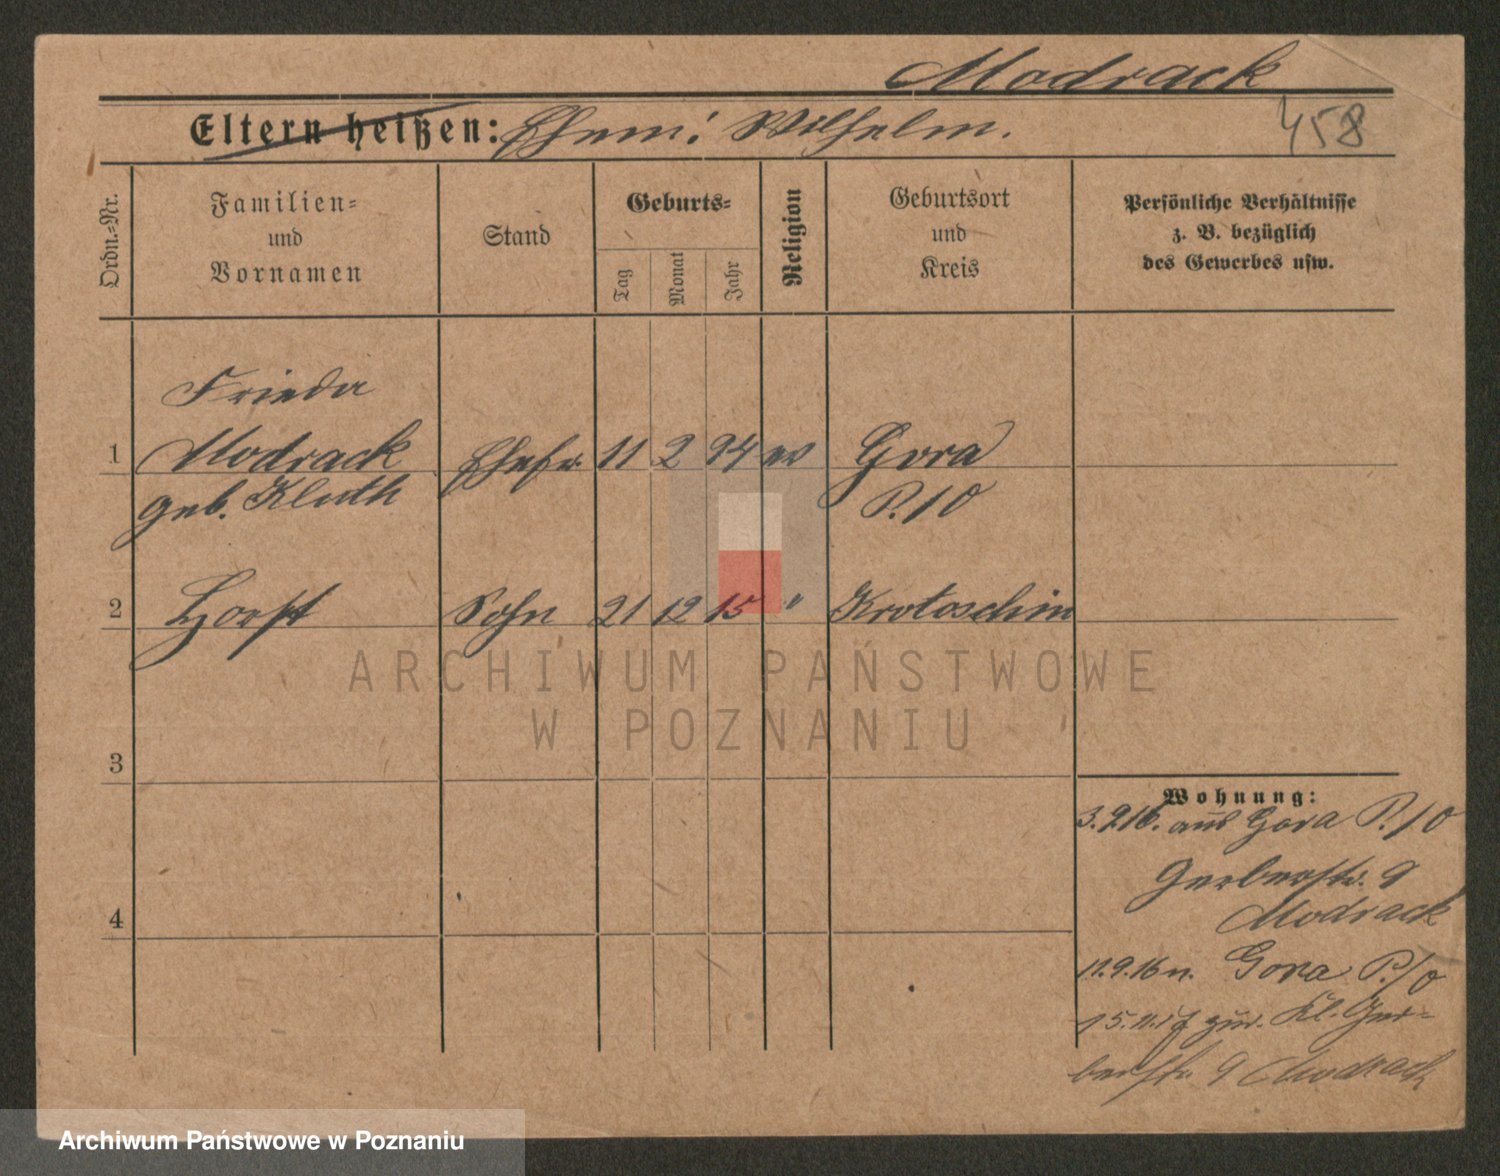 Modrack
Eltern heißen: Ehem: Wilhelm.
458
Ordn.=Nr.
Familien=
und
Vornamen
Stand
Geburts=
Tag
Monat
Jahr
Religion
Geburtsort
und
Kreis
Persönliche Verhältnisse
z. B. bezüglich
des Gewerbes usw.
Frieda
1 Modrack Ehefr. 11 2 94 ev Gora
geb. Kluth P./O
2 Horst Sohn 21 12 15 " Krotoschin
ARCHIWUM PAŃSTWOWE
W POZNANIU
3
Wohnung:
3.9.16. aus Gora P./O
Gerberstr. 9
Modrack
4
11.9.16 n. Gora P./O
15.11.17 zur. Kl. Ger-
berstr. 9 Modrack
Archiwum Państwowe w Poznaniu